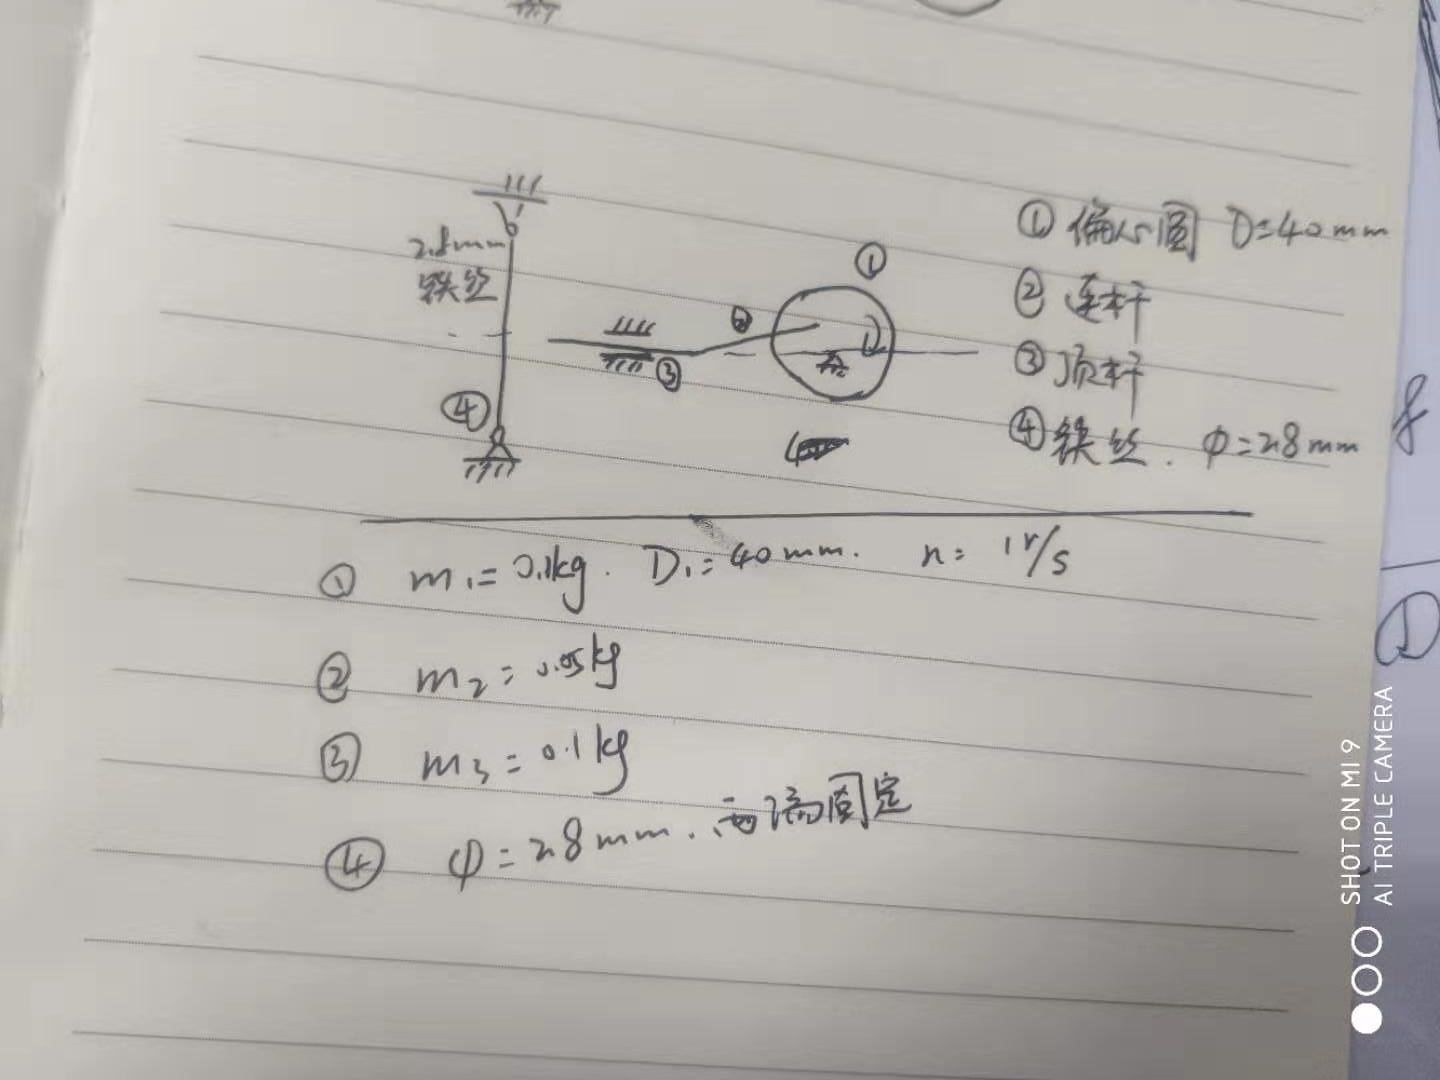 ① 偏心圆 D=40mm
2.8mm
铁丝
①
② 连杆
②
③ 顶杆
③
④
④ 铁丝. φ=2.8mm
① m₁=0.1kg. D₁=40mm. n=1r/s
② m₂=0.05kg
③ m₃=0.1kg
④ φ=2.8mm. 两端固定
SHOT ON MI 9
AI TRIPLE CAMERA